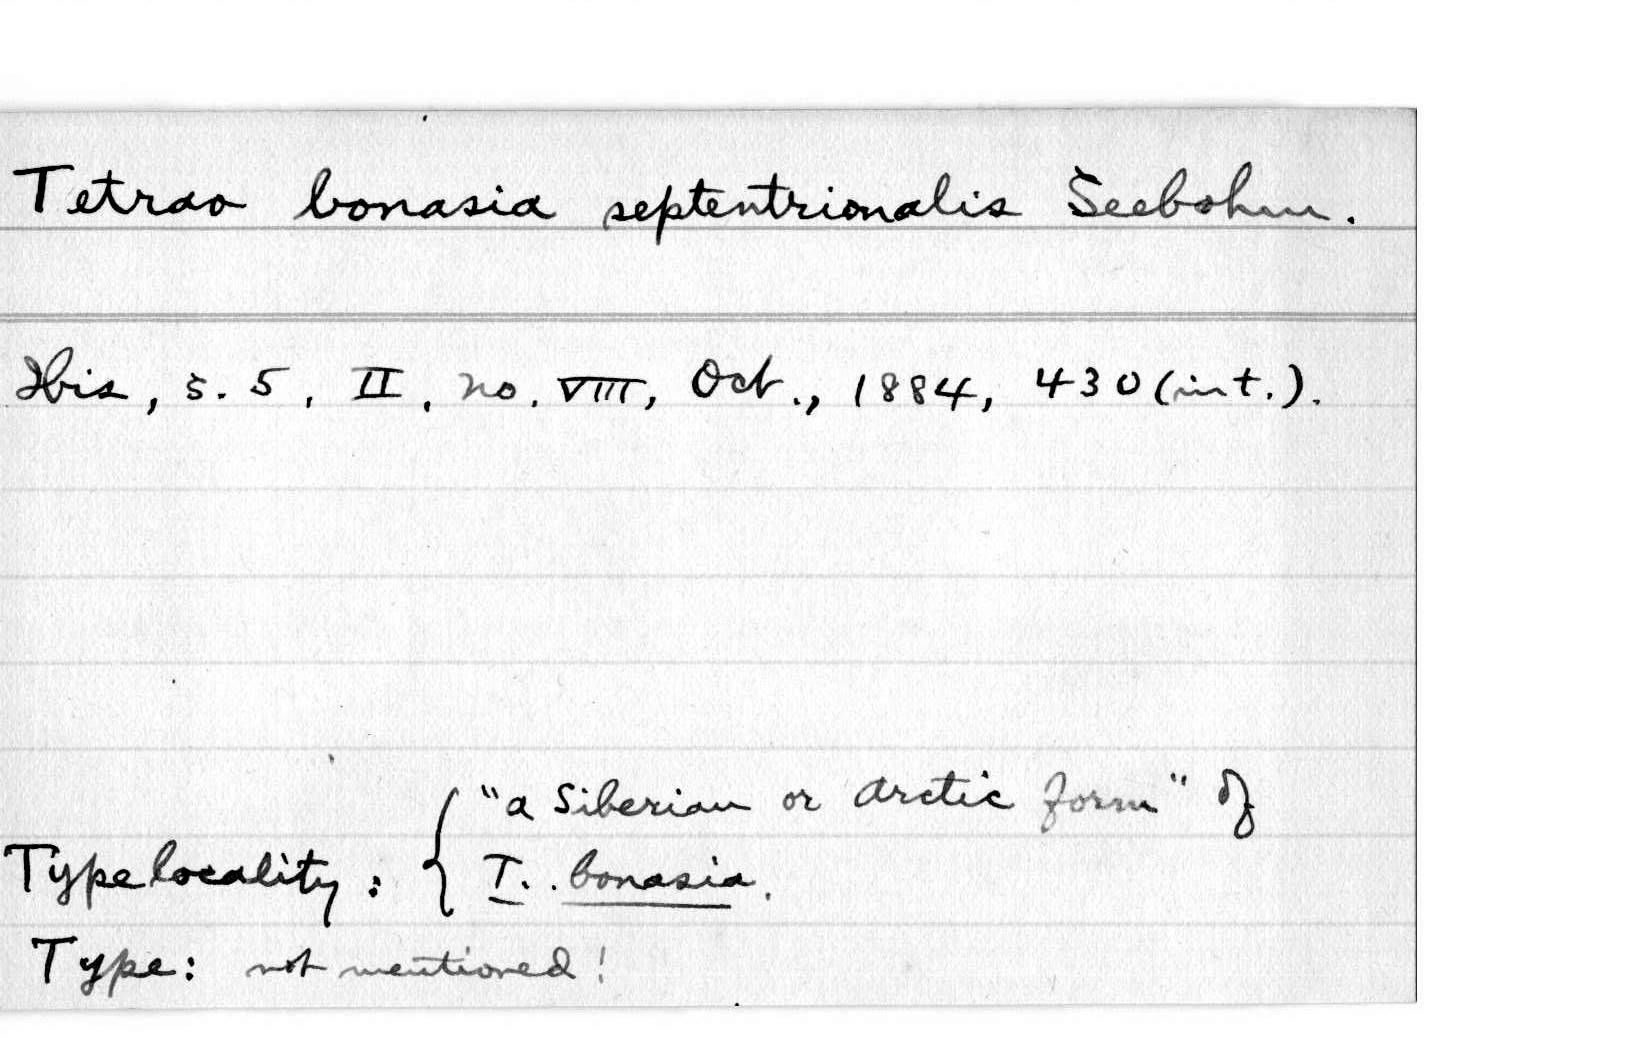 Tetrao bonasia septentrionalis Seebohm.
Ibis, s. 5, II, no. VIII, Oct., 1884, 430 (int.).
"a Siberian or Arctic form" of
Type locality: { T. bonasia.
Type: not mentioned!